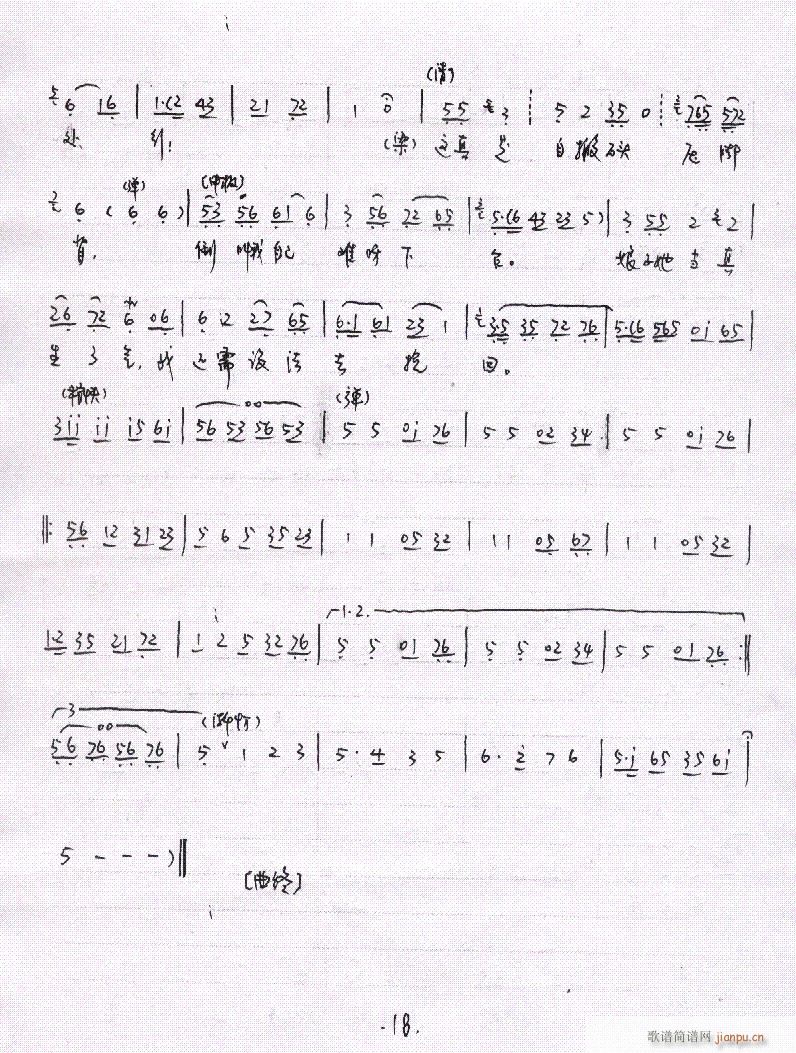 (清)
6 16 | 1·(2 43 | 21 72 | 1 0 | 55 3 5 2 35 0 765 572
处 (梁)这真是 自搬石头 压脚
(弹) (中板)
6 ( 6 6 ) | 53 56 61 6 | 3 56 72 65 | 5·(6 43 23 5) | 3 55 2 2 |
背, 倒叫我自己 难呀下 台。 娘子她当真
26 72 6 06 | 6 i2 27 65 | 6·1 61 23 1 | 3·5 35 72 76 | 5·(6 565 0i 65 |
生了气, 我还需设法去 挽 回。
(稍快) (弹)
3ii ii i5 6i | 56 53 56 53 | 5 5 0i 76 | 5 5 02 34 | 5 5 0i 76 |
‖: 56 12 31 23 | 5 6 5 35 23 | 1 1 05 32 | 1 1 05 67 | 1 1 05 32 |
1·2 35 21 72 | 1 2 5 32 76 | 5 5 01 76 | 5 5 02 34 | 5 5 01 76 :‖
1·2.
3
56 76 56 76 | 5 ∨ 1 2 3 | 5· 4 3 5 | 6· 2 7 6 | 5·i 65 35 6i |
5 - - - ) ‖
[曲终]
-18.
歌谱简谱网 jianpu.cn